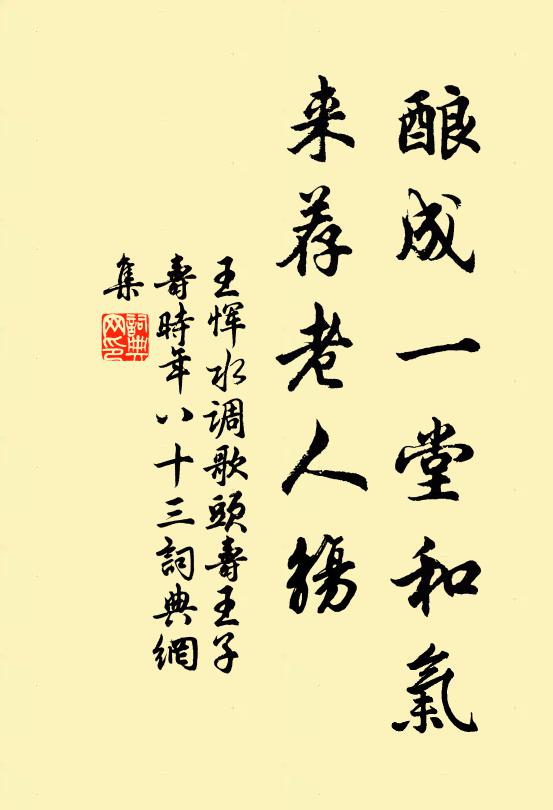 酿成一堂和氣
来荐老人觞
王恽水调歌頭壽王子
壽時年八十三詞典網
集
詞典
网印